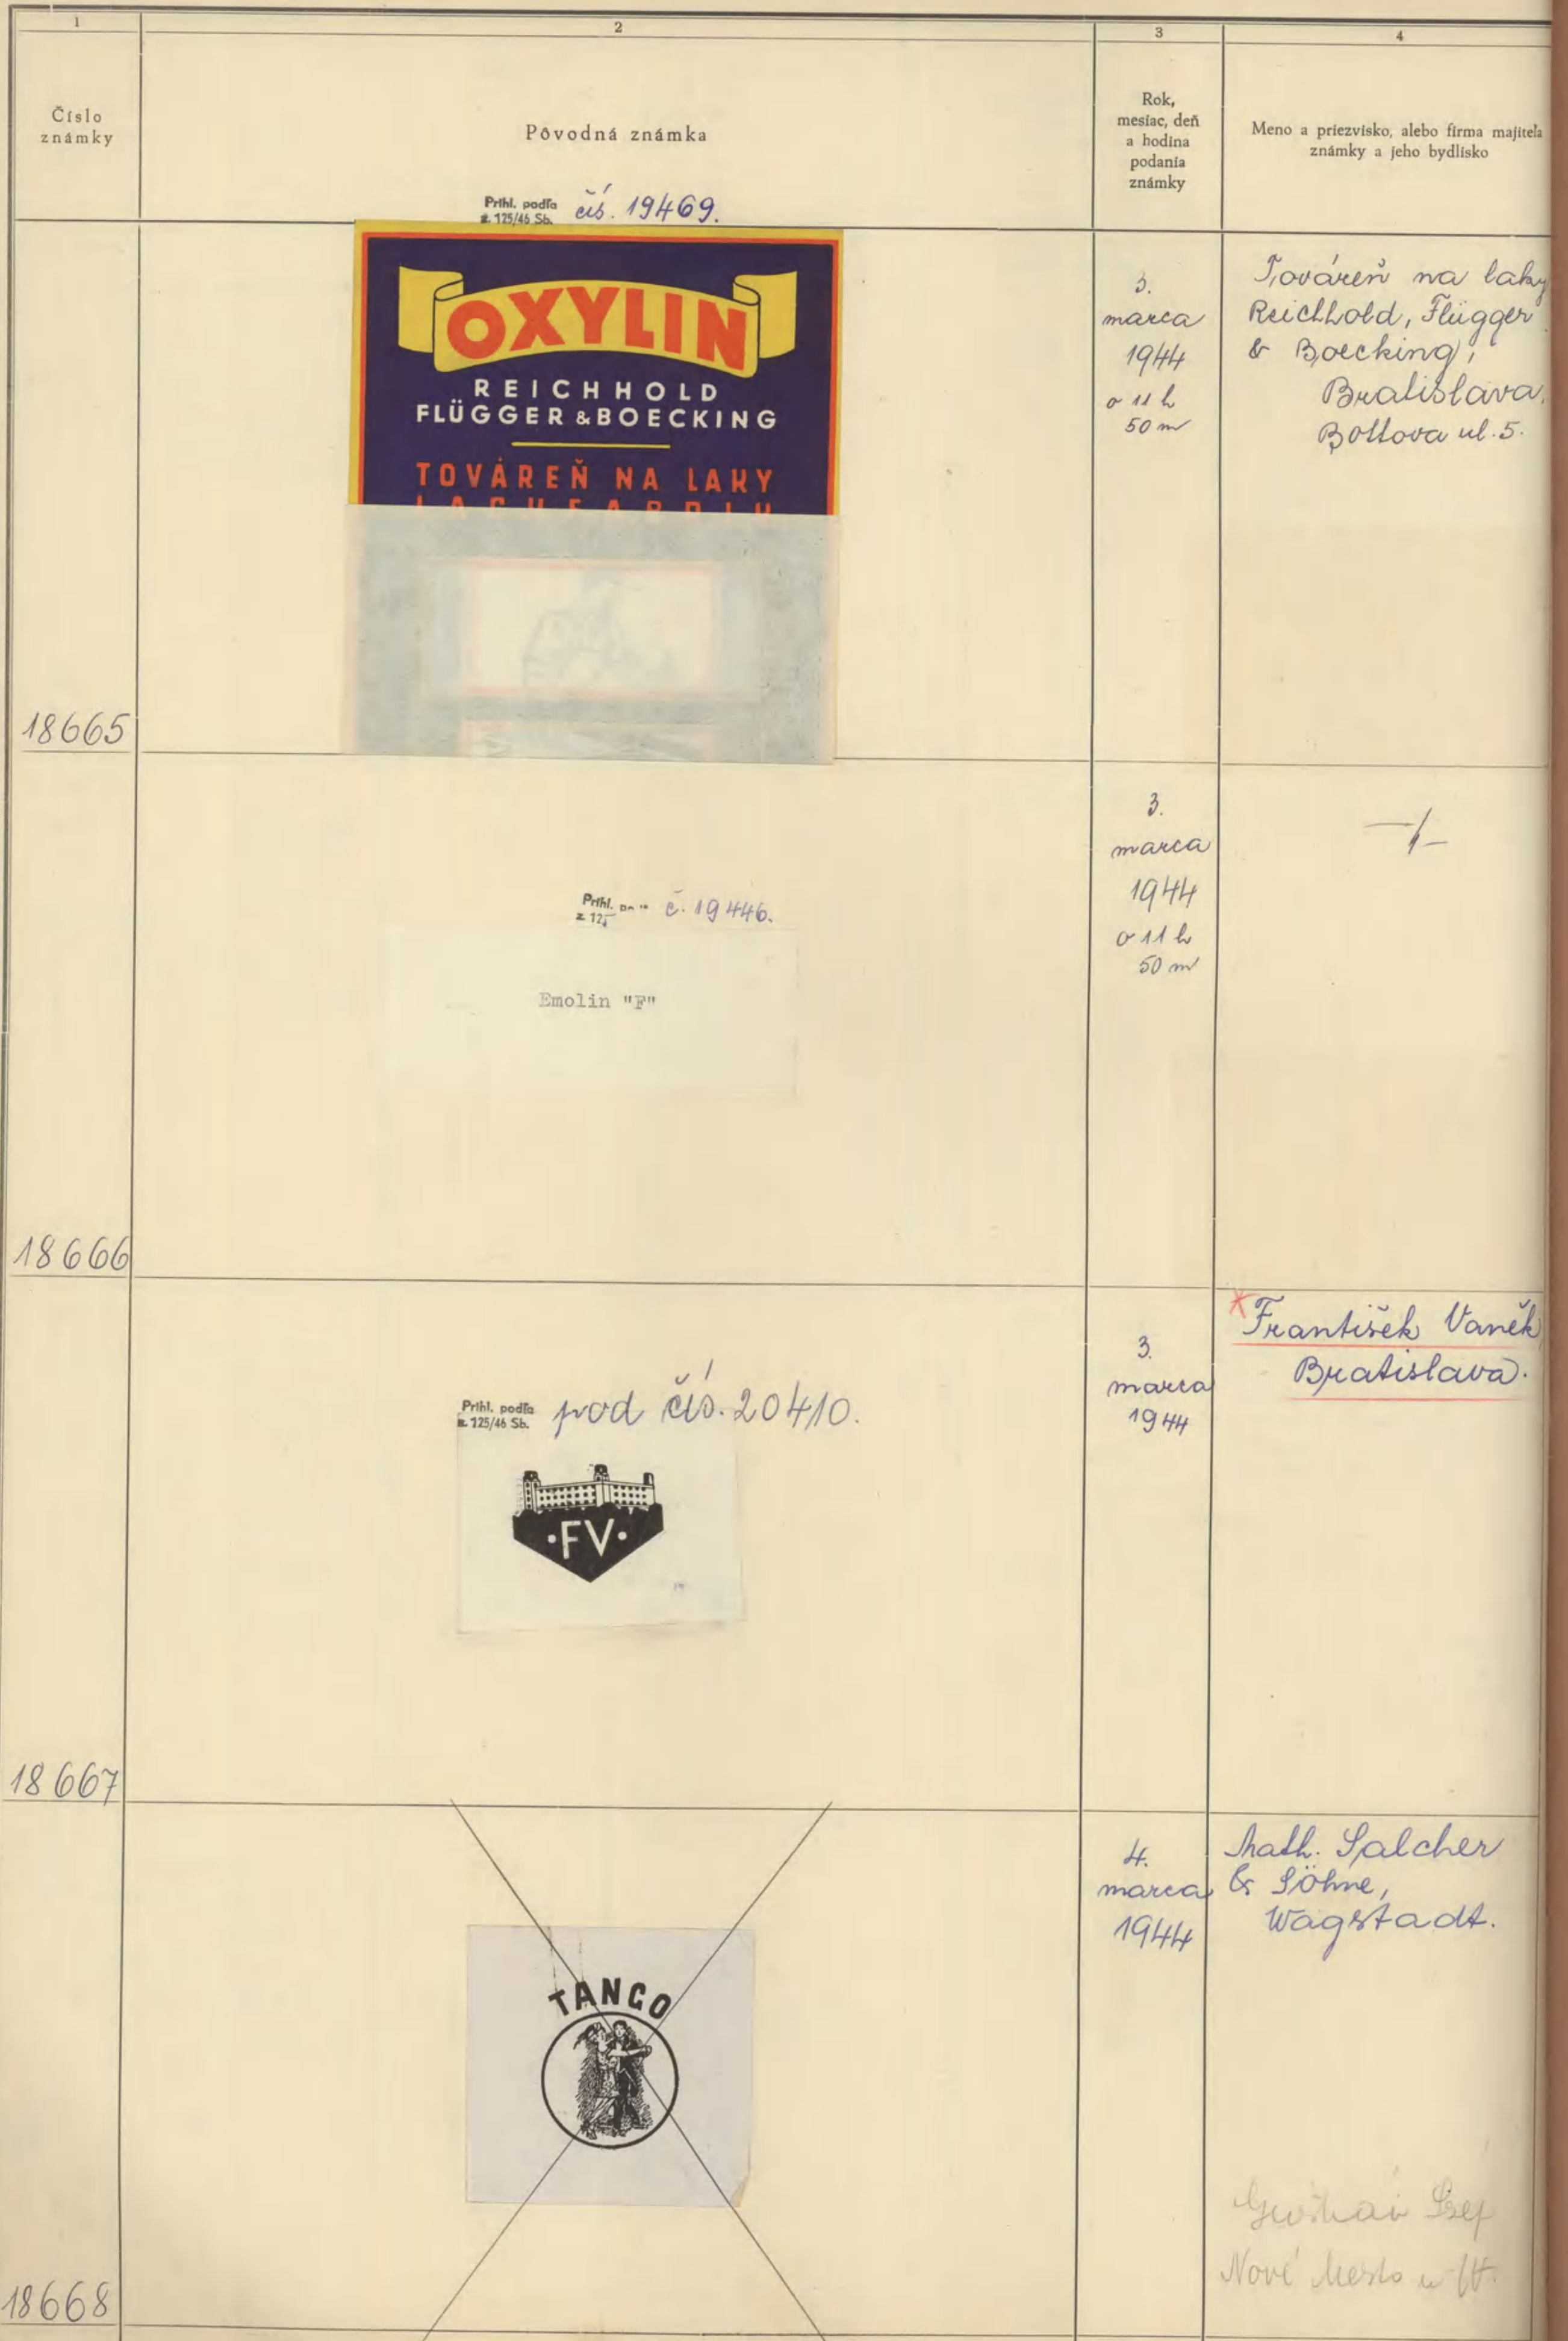 1
2
3
4
Číslo
známky
Pôvodná známka
Rok,
mesiac, deň
a hodina
podania
známky
Meno a priezvisko, alebo firma majiteľa
známky a jeho bydlisko
Prihl. podľa
z. 125/46 Sb.
čís. 19469.
OXYLIN
REICHHOLD
FLÜGGER & BOECKING
TOVÁREŇ NA LAKY
3.
marca
1944
o 11 h
50 m
Továreň na laky
Reichhold, Flügger
& Boecking,
Bratislava,
Bottova ul. 5.
18665
Prihl.
z. 125
č. 19446.
Emolin "F"
3.
marca
1944
o 11 h
50 m
-/-
18666
Prihl. podľa
z. 125/46 Sb.
pod čís. 20410.
·FV·
3.
marca
1944
František Vaněk,
Bratislava.
18667
TANGO
4.
marca
1944
Math. Salcher
& Söhne,
Wagstadt.
Nové Mesto
18668